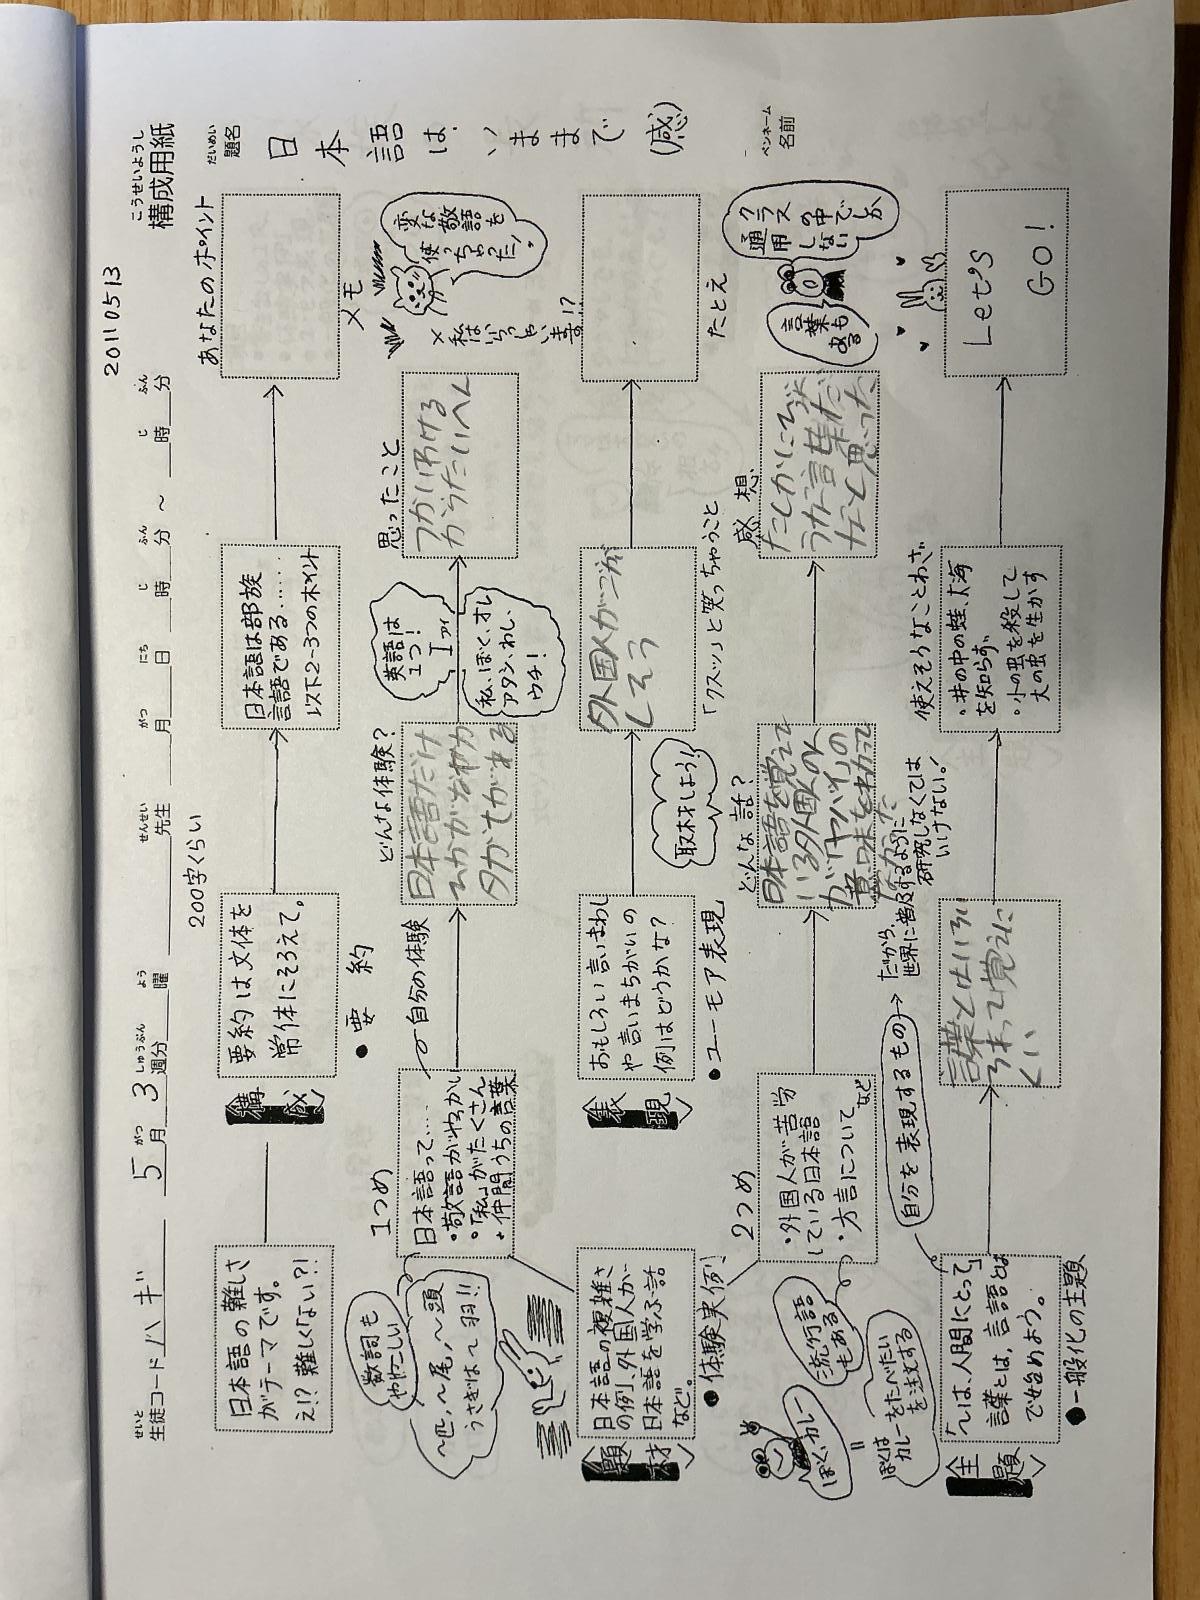 こうせいようし
構成用紙
20110513
せいと
生徒コード ハギ 5月 3週分 曜 先生 月 日 時 分 ～ 時 分
がつ しゅうぶん よう せんせい がつ にち じ ふん じ ふん
だいめい
題名
日本語は、いままで
(感)
ペンネーム
名前
200字くらい
あなたのポイント
日本語の難しさ
がテーマです。
え!?難しくない?!
〈構成〉
要約は文体を
常体にそろえて。
日本語は部族
言語である……
以下2〜3つのポイント
●要約
メモ
数詞も
ややこしい
〜匹,〜尾,〜頭
うさぎは〜羽!!
1つめ
日本語って….
・敬語がややこしい
・「私」がたくさん
・仲間うちの言葉
自分の体験
どんな体験?
日本語だけ
英語は
1つ!
I アイ
私、ぼく、オレ
アタシ、わし、
ウチ!
思ったこと
つかい分ける
からたいへん
変な敬語を
使っちゃった!
×私はいらっしゃいます!?
〈題材〉
日本語の複雑さ
の例、外国人が
日本語を学ぶ話
など。
●体験実例
〈表現〉
おもしろい言いまわし
や言いまちがいの
例はどうかな?
●ユーモア表現
取材しよう!
外国人がご
しそう
「クスッ」と笑っちゃうこと
たとえ
2つめ
・外国人が苦労
している日本語
・方言について
など
流行語
もある
ぼく、カレー
=
ぼくは
カレーをたべたい
を注文する
どんな話?
日本語を覚えて
いる外国人の人
が「ヤバイ」の
意味をわかって
感想
たしかに
言葉だ
なと思った
クラス
の中でしか
通用
しない
言葉も
ある
〈主題〉
「〜は、人間にとって」
言葉とは、言語とは
で始めよう。
●一般化の主題
自分を表現するもの
だから、
世界に普及するように
研究しなくては
いけない!
言葉とはいろい
ろあって覚えに
くい
使えそうなことわざ
・井の中の蛙、大海
を知らず
・小の虫を殺して
大の虫を生かす
Let's
GO!